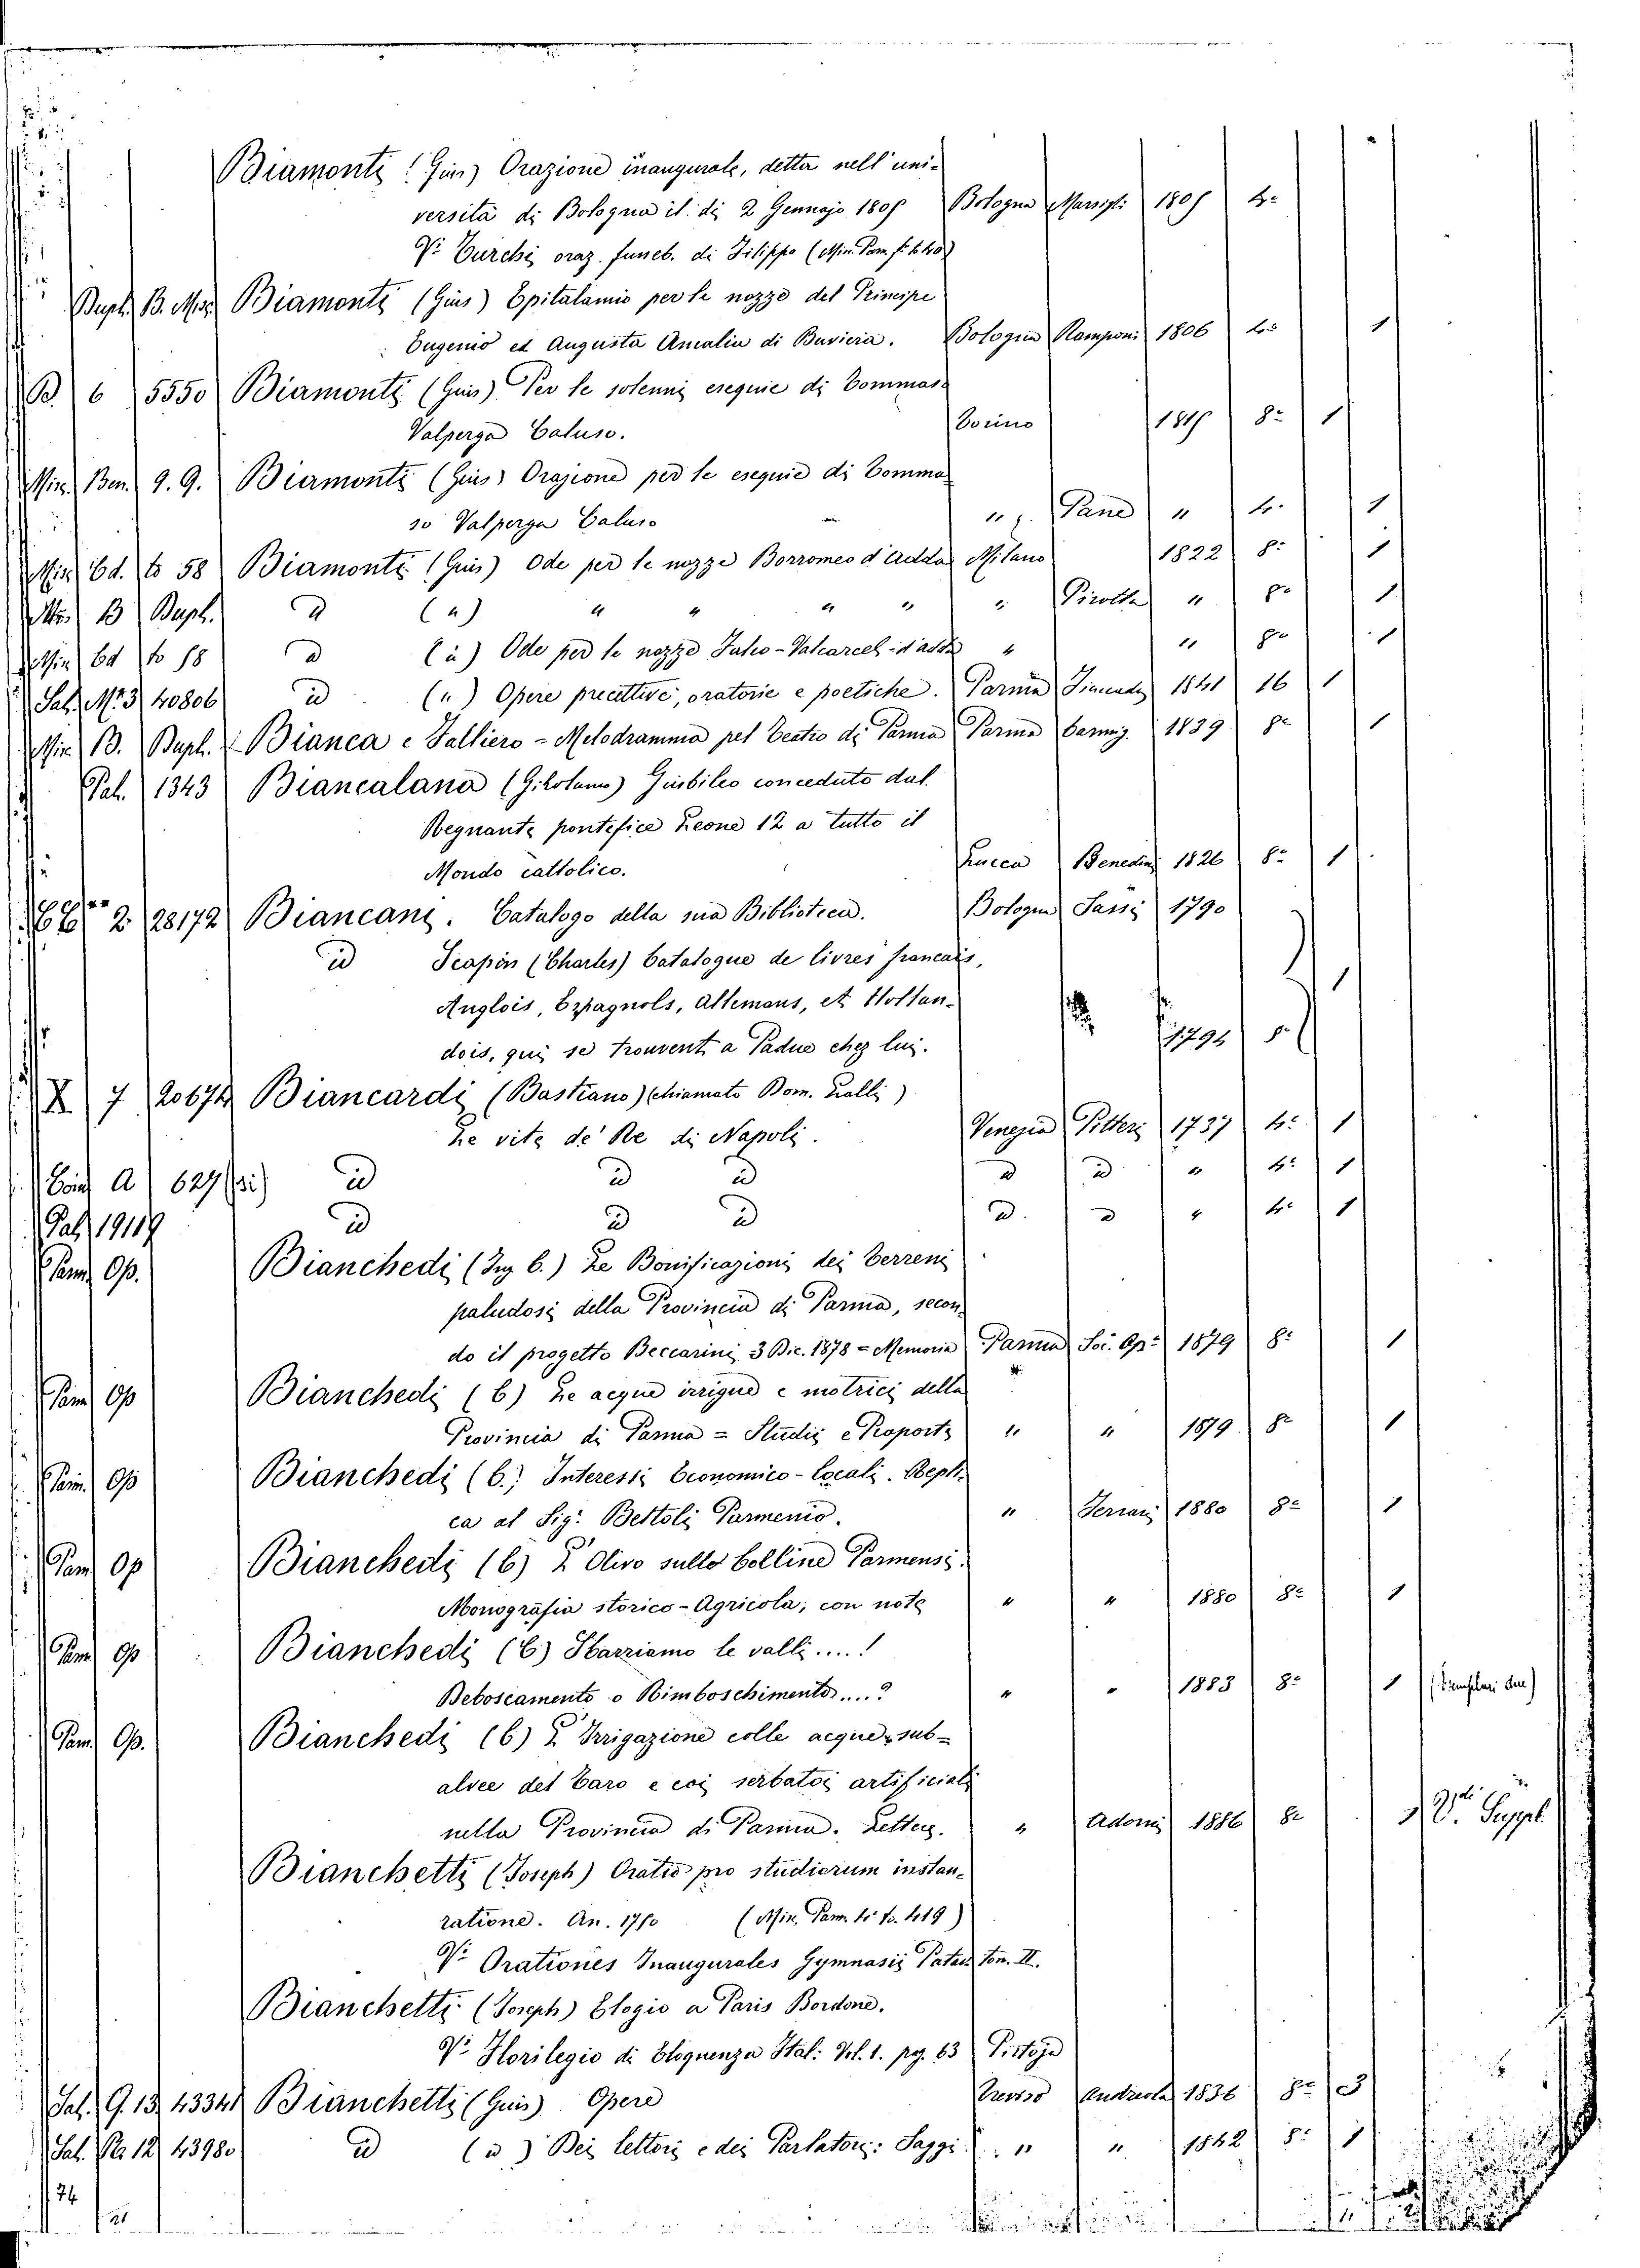 Biamonti (Gius) Orazione inaugurale, detta nell' uni-
versità di Bologna il di 2 Gennajo 180 Bologna Marsigli 180 4°
V. Turchi oraz. funeb. di Filippo (Min. Pam. f.
Dupl. B. Misc. Biamonti (Gius) Epitalamio per le nozze del Principe
Eugenio ed Augusta Amalia di Baviera. Bologna Ramponi 1806 4° 1
B. 6 5550 Biamonti (Gius) Per le solenni esequie di Tommaso
Valperga Caluso. Torino 8° 1
Min. Ben. 9. 9. Biamonti (Gius) Orazione per le esequie di Tomma
so Valperga Caluso " Pane " 4° 1
Min. Ed. to 58 Biamonti (Gius) Ode per le nozze Borromeo d'Adda Milano 1822 8° 1
Min. B Dupl. id (") " " " " " Pirotta " 8° 1
Min. Ed to 58 id (id) Ode per le nozze d'Adda " " 8° 1
Sal. M. 3 40806 id (") Opere precettive, oratorie e poetiche. Parma Fiaccadori 1841 16 1
Min. B. Dupl. Bianca e Falliero = Melodramma pel Teatro di Parma Parma Carmig. 1839 8° 1
Pal. 1343 Biancalana (Girolamo) Giubileo conceduto dal
Regnante pontefice Leone 12 a tutto il
Mondo cattolico. Lucca Benedini 1826 8° 1
2 28172 Biancani. Catalogo della sua Biblioteca. Bologna Sassi 1790
id Scapin (Charles) Catalogue de livres francais,
Anglois, Espagnols, Allemans, et Hollan-
dois, qui se trouvent a Padue chez lui. 8° 1
X 7 20674 Biancardi (Bastiano) (chiamato Dom. Lalli)
Le vite de' Re di Napoli. Venezia Pitteri 1737 4° 1
A 627 id id id id id " 4° 1
Pal. 19119 id id id id. id " 4° 1
Parm. Op. Bianchedi (Ing C.) Le Bonificazioni dei Terreni
paludosi della Provincia di Parma, secon-
do il progetto Beccarini 3 Dic. 1878 = Memoria Parma Soc. Op. 1879 8° 1
Parm. Op Bianchedi (C) Le acque irrigue e motrici della
Provincia di Parma = Studii e Proposte " " 1879 8° 1
Parm. Op Bianchedi (C.) Interessi Economico-Locali. Repli-
ca al Sig. Bettoli Parmenio. " Ferrari 1880 8° 1
Parm. Op Bianchedi (C) L'Olivo sulle Colline Parmensi.
Monografia storico-Agricola; con note " " 1880 8° 1
Parm. Op Bianchedi (C) Sbarriamo le valli.....!
Deboscamento o Rimboschimento....? " " 1883 8° 1 (Esemplari due)
Parm. Op. Bianchedi (C) L'Irrigazione colle acque sub-
alvee del Taro e coi serbatoi artificiali
nella Provincia di Parma. Lettera. " Adorni 1886 8° 1 V. Suppl.
Bianchetti (Joseph) Oratio pro studiorum instau-
ratione. An. 17 (Min. Parm. 4° to. 419)
V. Orationes Inaugurales Gymnasii Patav. tom. II.
Bianchetti (Joseph) Elogio a Paris Bordone.
V. Florilegio di Eloquenza Ital: Vol. 1. pg. 63 Pistoja
Sal. G. 13 43341 Bianchetti (Gius) Opere Treviso Andreola 1836 8° 3
Sal. 12 43980 id (id) Dei lettori e dei Parlatori: Saggi. " " 1842 8° 1